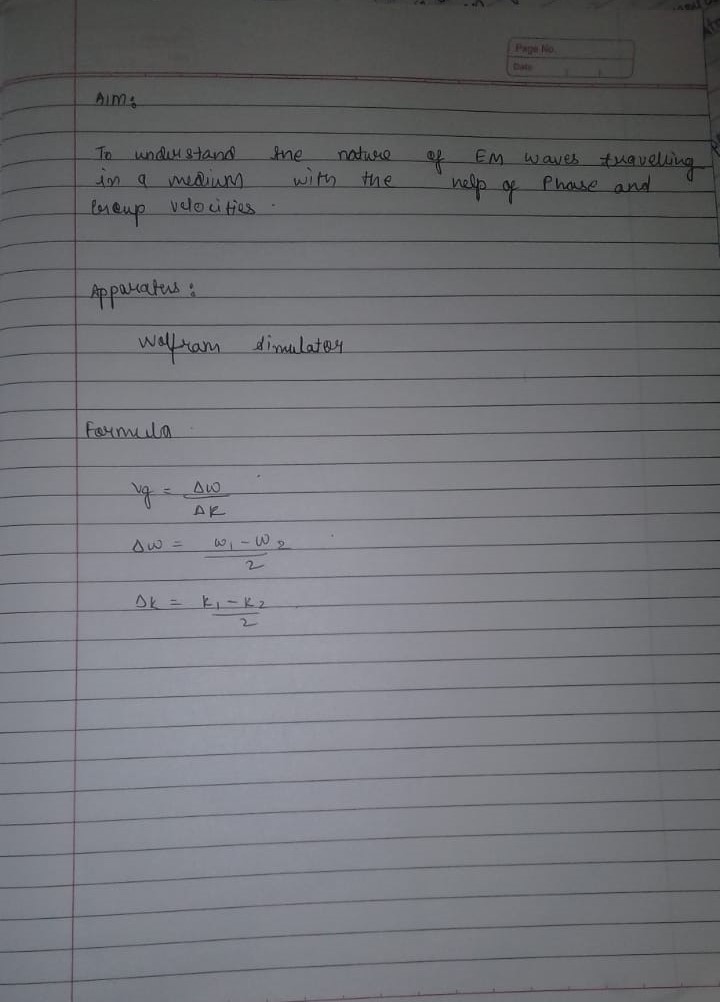 Page No.
Date
Aim:
To understand the nature of EM waves travelling
in a medium with the help of Phase and
Group velocities.
Apparatus:
Wolfram simulator
Formula
vg = Δw / Δk
Δw = w₁ - w₂ / 2
Δk = k₁ - k₂ / 2